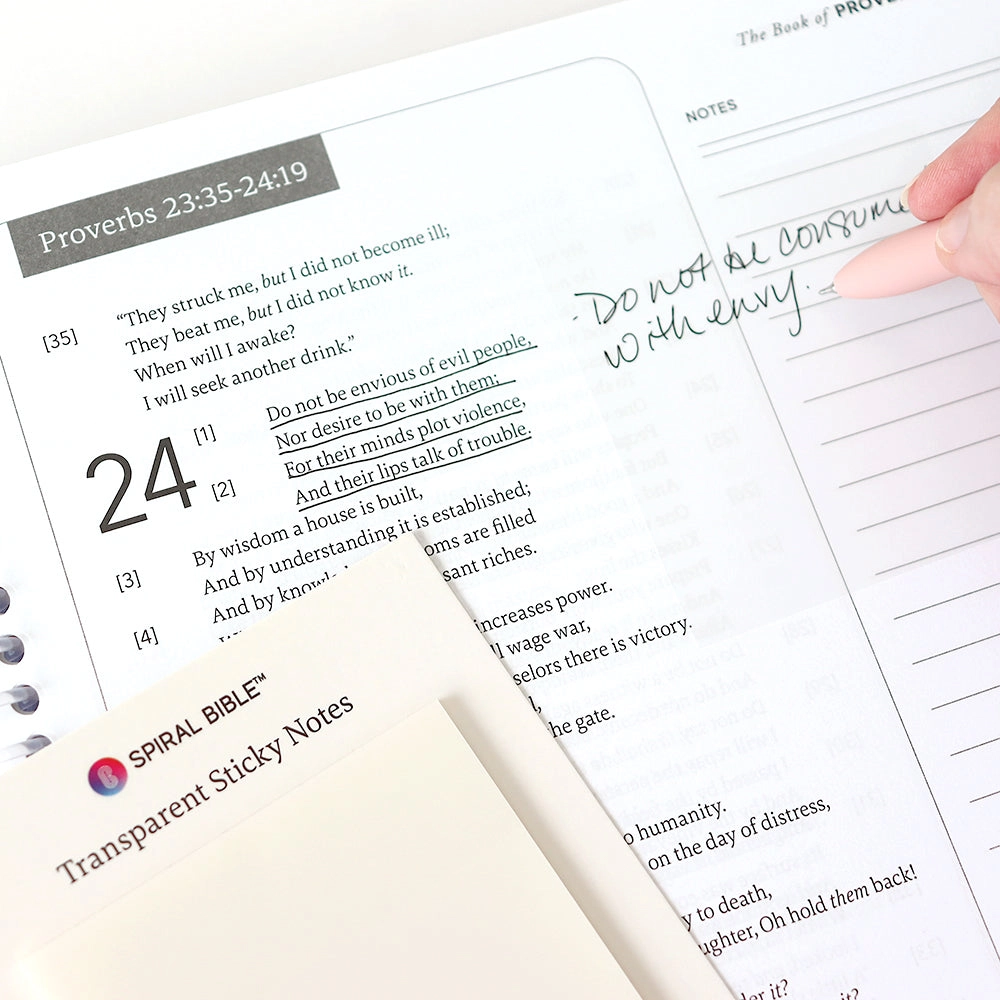 The Book of
NOTES
Proverbs 23:35-24:19
[35] "They struck me, but I did not become ill;
They beat me, but I did not know it.
When will I awake?
I will seek another drink."
24 [1] Do not be envious of evil people,
Nor desire to be with them;
[2] For their minds plot violence,
And their lips talk of trouble.
[3] By wisdom a house is built,
And by understanding it is established;
[4] And by
are filled
riches.
increases power.
wage war,
there is victory.
gate.
humanity.
on the day of distress,
to death,
Oh hold them back!
it?
it?
- Do not be
with envy.
SPIRAL BIBLE™
Transparent Sticky Notes